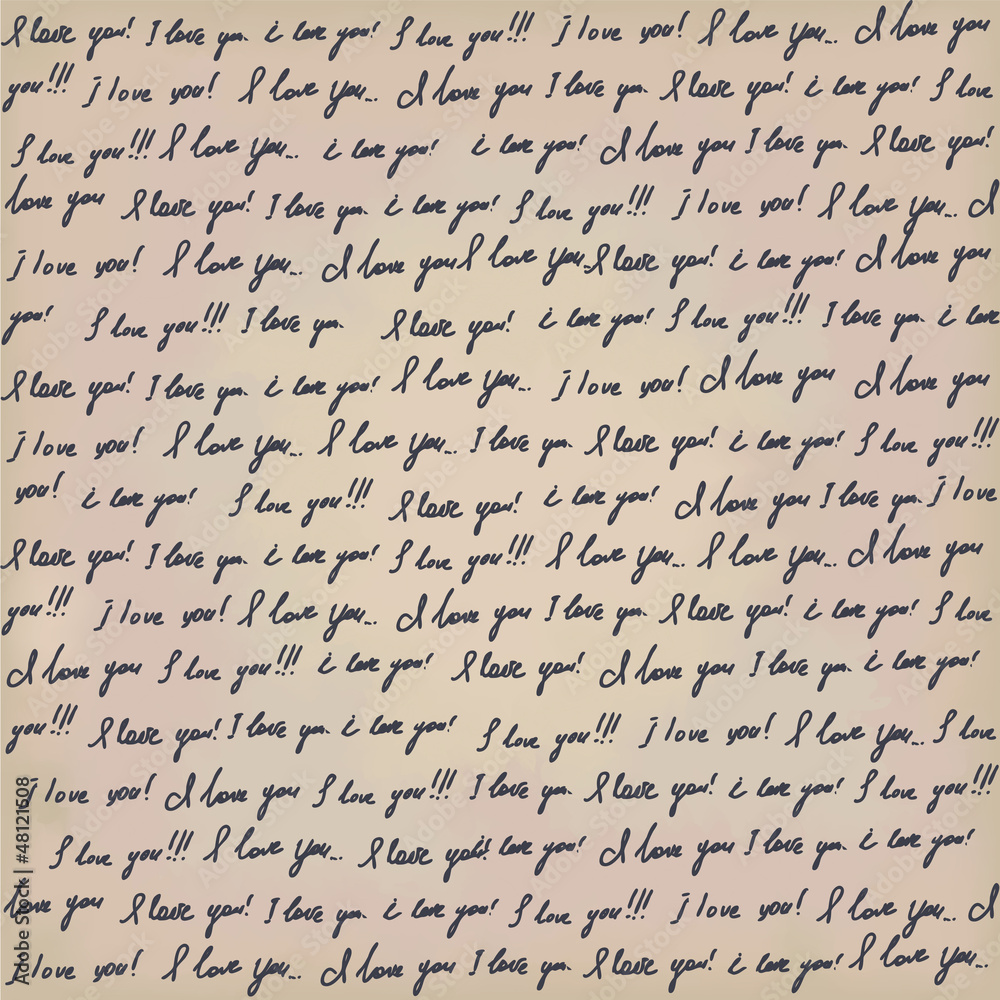 I love you! I love you. i love you! I love you!!! j love you! I love you... I love you
you!!! j love you! I love you... I love you I love you. I love you! i love you! I love
I love you!!! I love you... i love you! i love you! I love you I love you. I love you!
love you I love you! I love you. i love you! I love you!!! j love you! I love you... I
j love you! I love you... I love you I love you... I love you! i love you! I love you
you! I love you!!! I love you. I love you! i love you! I love you!!! I love you. i love
I love you! I love you. i love you! I love you... j love you! I love you I love you
j love you! I love you... I love you... I love you. I love you! i love you! I love you!!!
you! i love you! I love you!!! I love you! i love you! I love you I love you. j love
I love you! I love you. i love you! I love you!!! I love you... I love you... I love you
you!!! j love you! I love you... I love you I love you. I love you! i love you! I love
I love you I love you!!! i love you! I love you! I love you I love you. i love you!
you!!! I love you! I love you. i love you! I love you!!! j love you! I love you... I love
j love you! I love you I love you!!! I love you. I love you! i love you! I love you!!!
I love you!!! I love you... I love you! i love you! I love you I love you. i love you!
love you I love you! I love you. i love you! I love you!!! j love you! I love you... I
j love you! I love you... I love you I love you. I love you! i love you! I love you...
Adobe Stock | #48121608